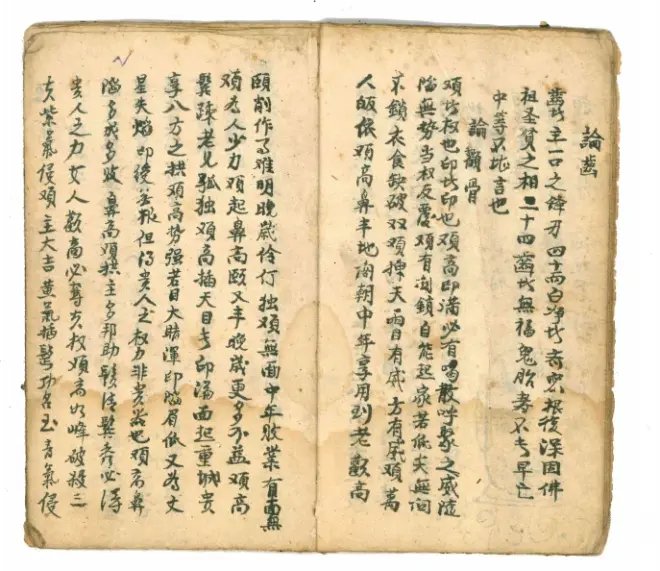 論齒
齒者主一口之鋒刃四十而白淨者齊密根後深固佛
祖圣賢之相二十四齒者無福鬼胎者不壽早亡
中等不堪言也
論顴骨
顴者权也印者印也顴高印滿必有喝散呼聚之威隨
陷無勢当权反覆顴有削鎖自能起家若低尖無
不鎖衣食缺破双顴捭天面有威方有威顴萬
人皈依顴高鼻丰地阁朝中年享用到老顴高
頤削作事难明晚歲伶仃独顴無面中年敗業有面無
顴老人少力顴起鼻高頤又丰晚歲更多不益顴高
鬓疎老見孤独顴高插天目秀印滿面担重城貴
享八方之拱顴高势强若目大睛渾印陷眉低又为文
星失陷印後無根但得貴人之权力非貴器也顴高鼻
陷多成多敗鼻高顴拱主多邦助鬚清鬓秀必得
貴人之力女人顴高必奪夫权顴高如峰破殺三
夫紫氣侵顴主大吉黄氣插鬓功名至青氣侵